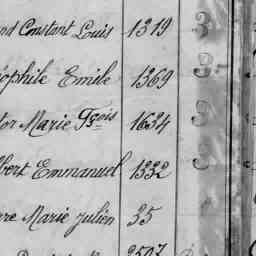 nd Constant Louis 1319
éophile Emile 1369
tor Marie Fçois 1634
bert Emmanuel 1332
re Marie Julien 35
3507